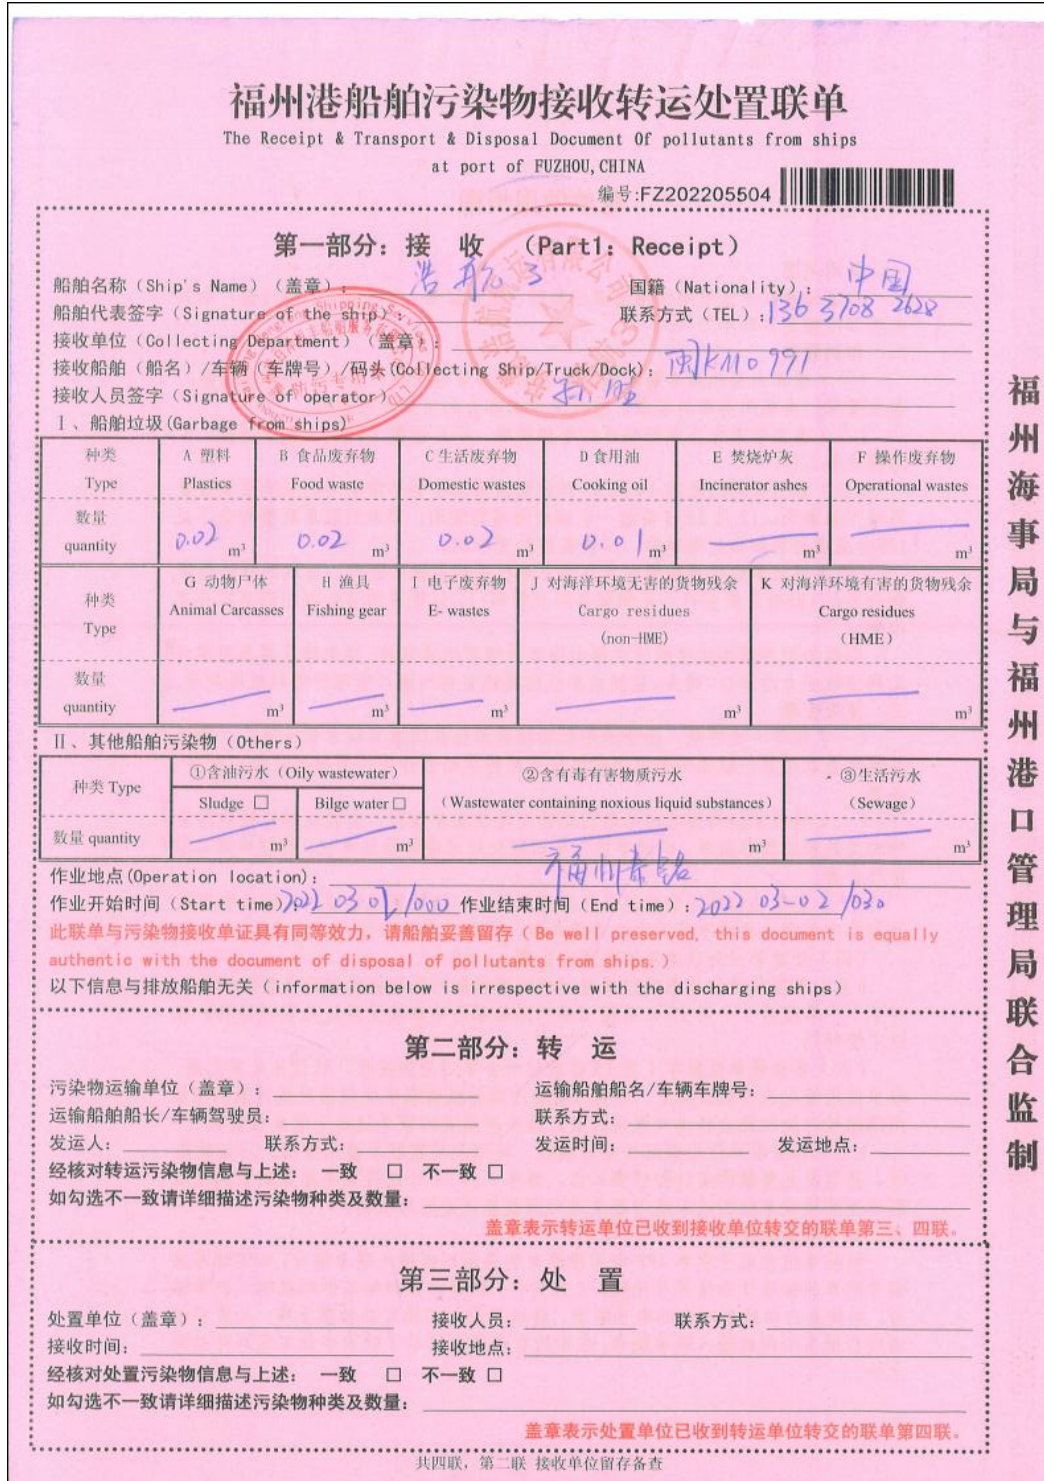 福州港船舶污染物接收转运处置联单
The Receipt & Transport & Disposal Document Of pollutants from ships
at port of FUZHOU,CHINA
编号:FZ202205504
第一部分：接 收 （Part1：Receipt）
船舶名称（Ship's Name）（盖章）：浩航3 国籍（Nationality）：中国
船舶代表签字（Signature of the ship）： 联系方式（TEL）：136 3708 2628
接收单位（Collecting Department）（盖章）：
接收船舶（船名）/车辆（车牌号）/码头(Collecting Ship/Truck/Dock)：闽K110991
接收人员签字（Signature of operator）
Ⅰ、船舶垃圾(Garbage from ships)
种类 A 塑料 B 食品废弃物 C 生活废弃物 D 食用油 E 焚烧炉灰 F 操作废弃物
Type Plastics Food waste Domestic wastes Cooking oil Incinerator ashes Operational wastes
数量
quantity 0.02 m³ 0.02 m³ 0.02 m³ 0.01 m³ m³ m³
种类 G 动物尸体 H 渔具 I 电子废弃物 J 对海洋环境无害的货物残余 K 对海洋环境有害的货物残余
Type Animal Carcasses Fishing gear E- wastes Cargo residues Cargo residues
(non-HME) （HME）
数量
quantity m³ m³ m³ m³ m³
Ⅱ、其他船舶污染物（Others）
种类 Type ①含油污水（Oily wastewater） ②含有毒有害物质污水 ③生活污水
Sludge □ Bilge water □ （Wastewater containing noxious liquid substances） （Sewage）
数量 quantity m³ m³ m³ m³
作业地点(Operation location)：福州
作业开始时间（Start time）2022 03 02 1000 作业结束时间（End time）：2022 03-02 1030
此联单与污染物接收单证具有同等效力，请船舶妥善留存（Be well preserved, this document is equally
authentic with the document of disposal of pollutants from ships.）
以下信息与排放船舶无关（information below is irrespective with the discharging ships）
第二部分：转 运
污染物运输单位（盖章）： 运输船舶船名/车辆车牌号：
运输船舶船长/车辆驾驶员： 联系方式：
发运人： 联系方式： 发运时间： 发运地点：
经核对转运污染物信息与上述： 一致 □ 不一致 □
如勾选不一致请详细描述污染物种类及数量：
盖章表示转运单位已收到接收单位转交的联单第三、四联。
第三部分：处 置
处置单位（盖章）： 接收人员： 联系方式：
接收时间： 接收地点：
经核对处置污染物信息与上述： 一致 □ 不一致 □
如勾选不一致请详细描述污染物种类及数量：
盖章表示处置单位已收到转运单位转交的联单第四联。
共四联，第二联 接收单位留存备查
福州海事局与福州港口管理局联合监制